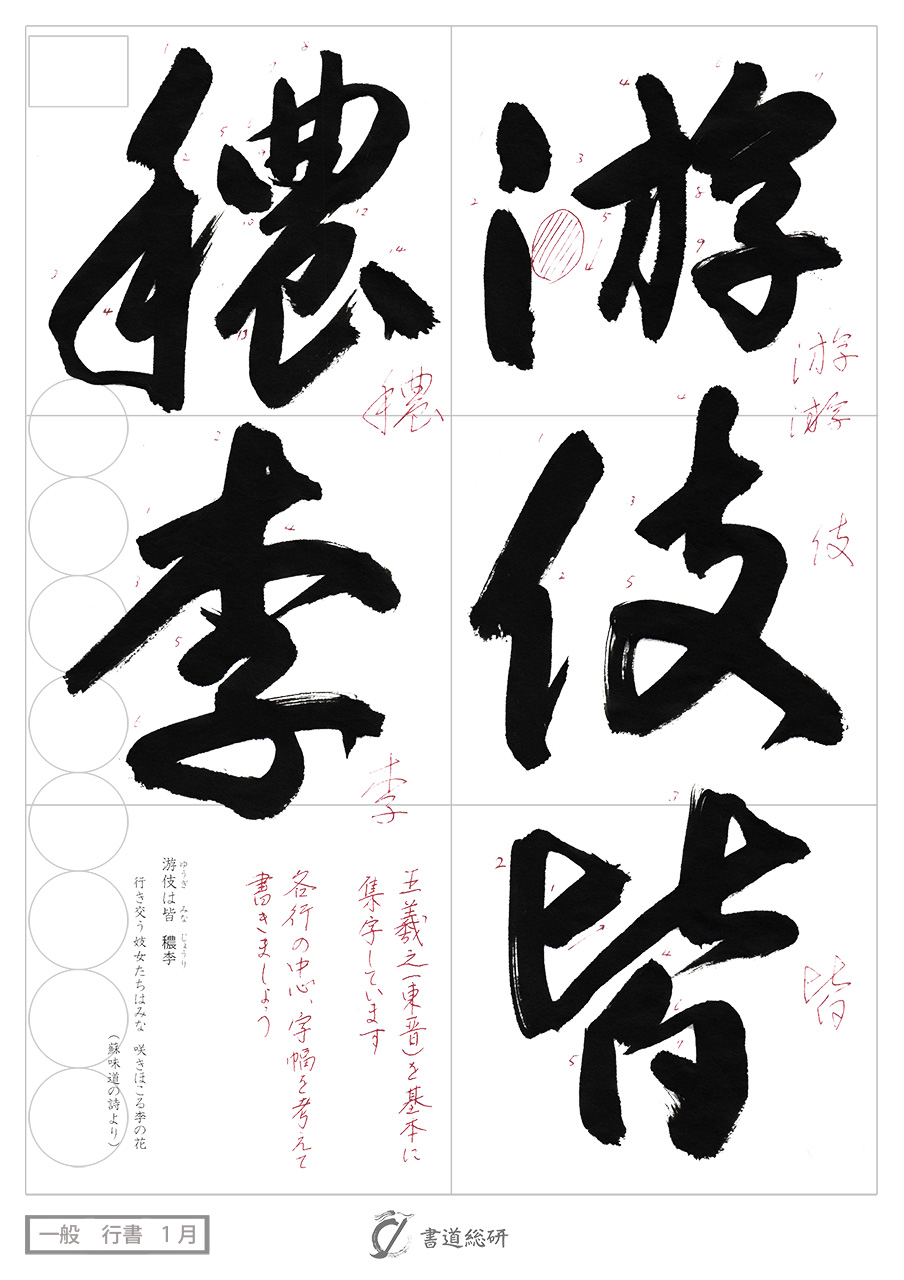 游伎皆
穠李
游
游
伎
皆
穠
李
王羲之(東晋)を基本に
集字しています
各行の中心、字幅を考えて
書きましょう
游伎は皆 穠李
ゆうぎ みな じょうり
行き交う妓女たちはみな 咲きほこる李の花
(蘇味道の詩より)
一般 行書 1月
書道総研